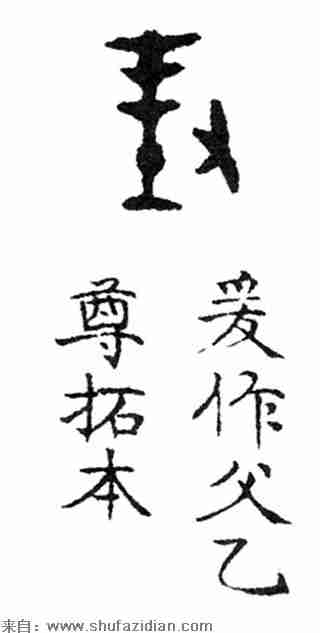 爰作父乙
尊拓本
来自：www.shufazidian.com